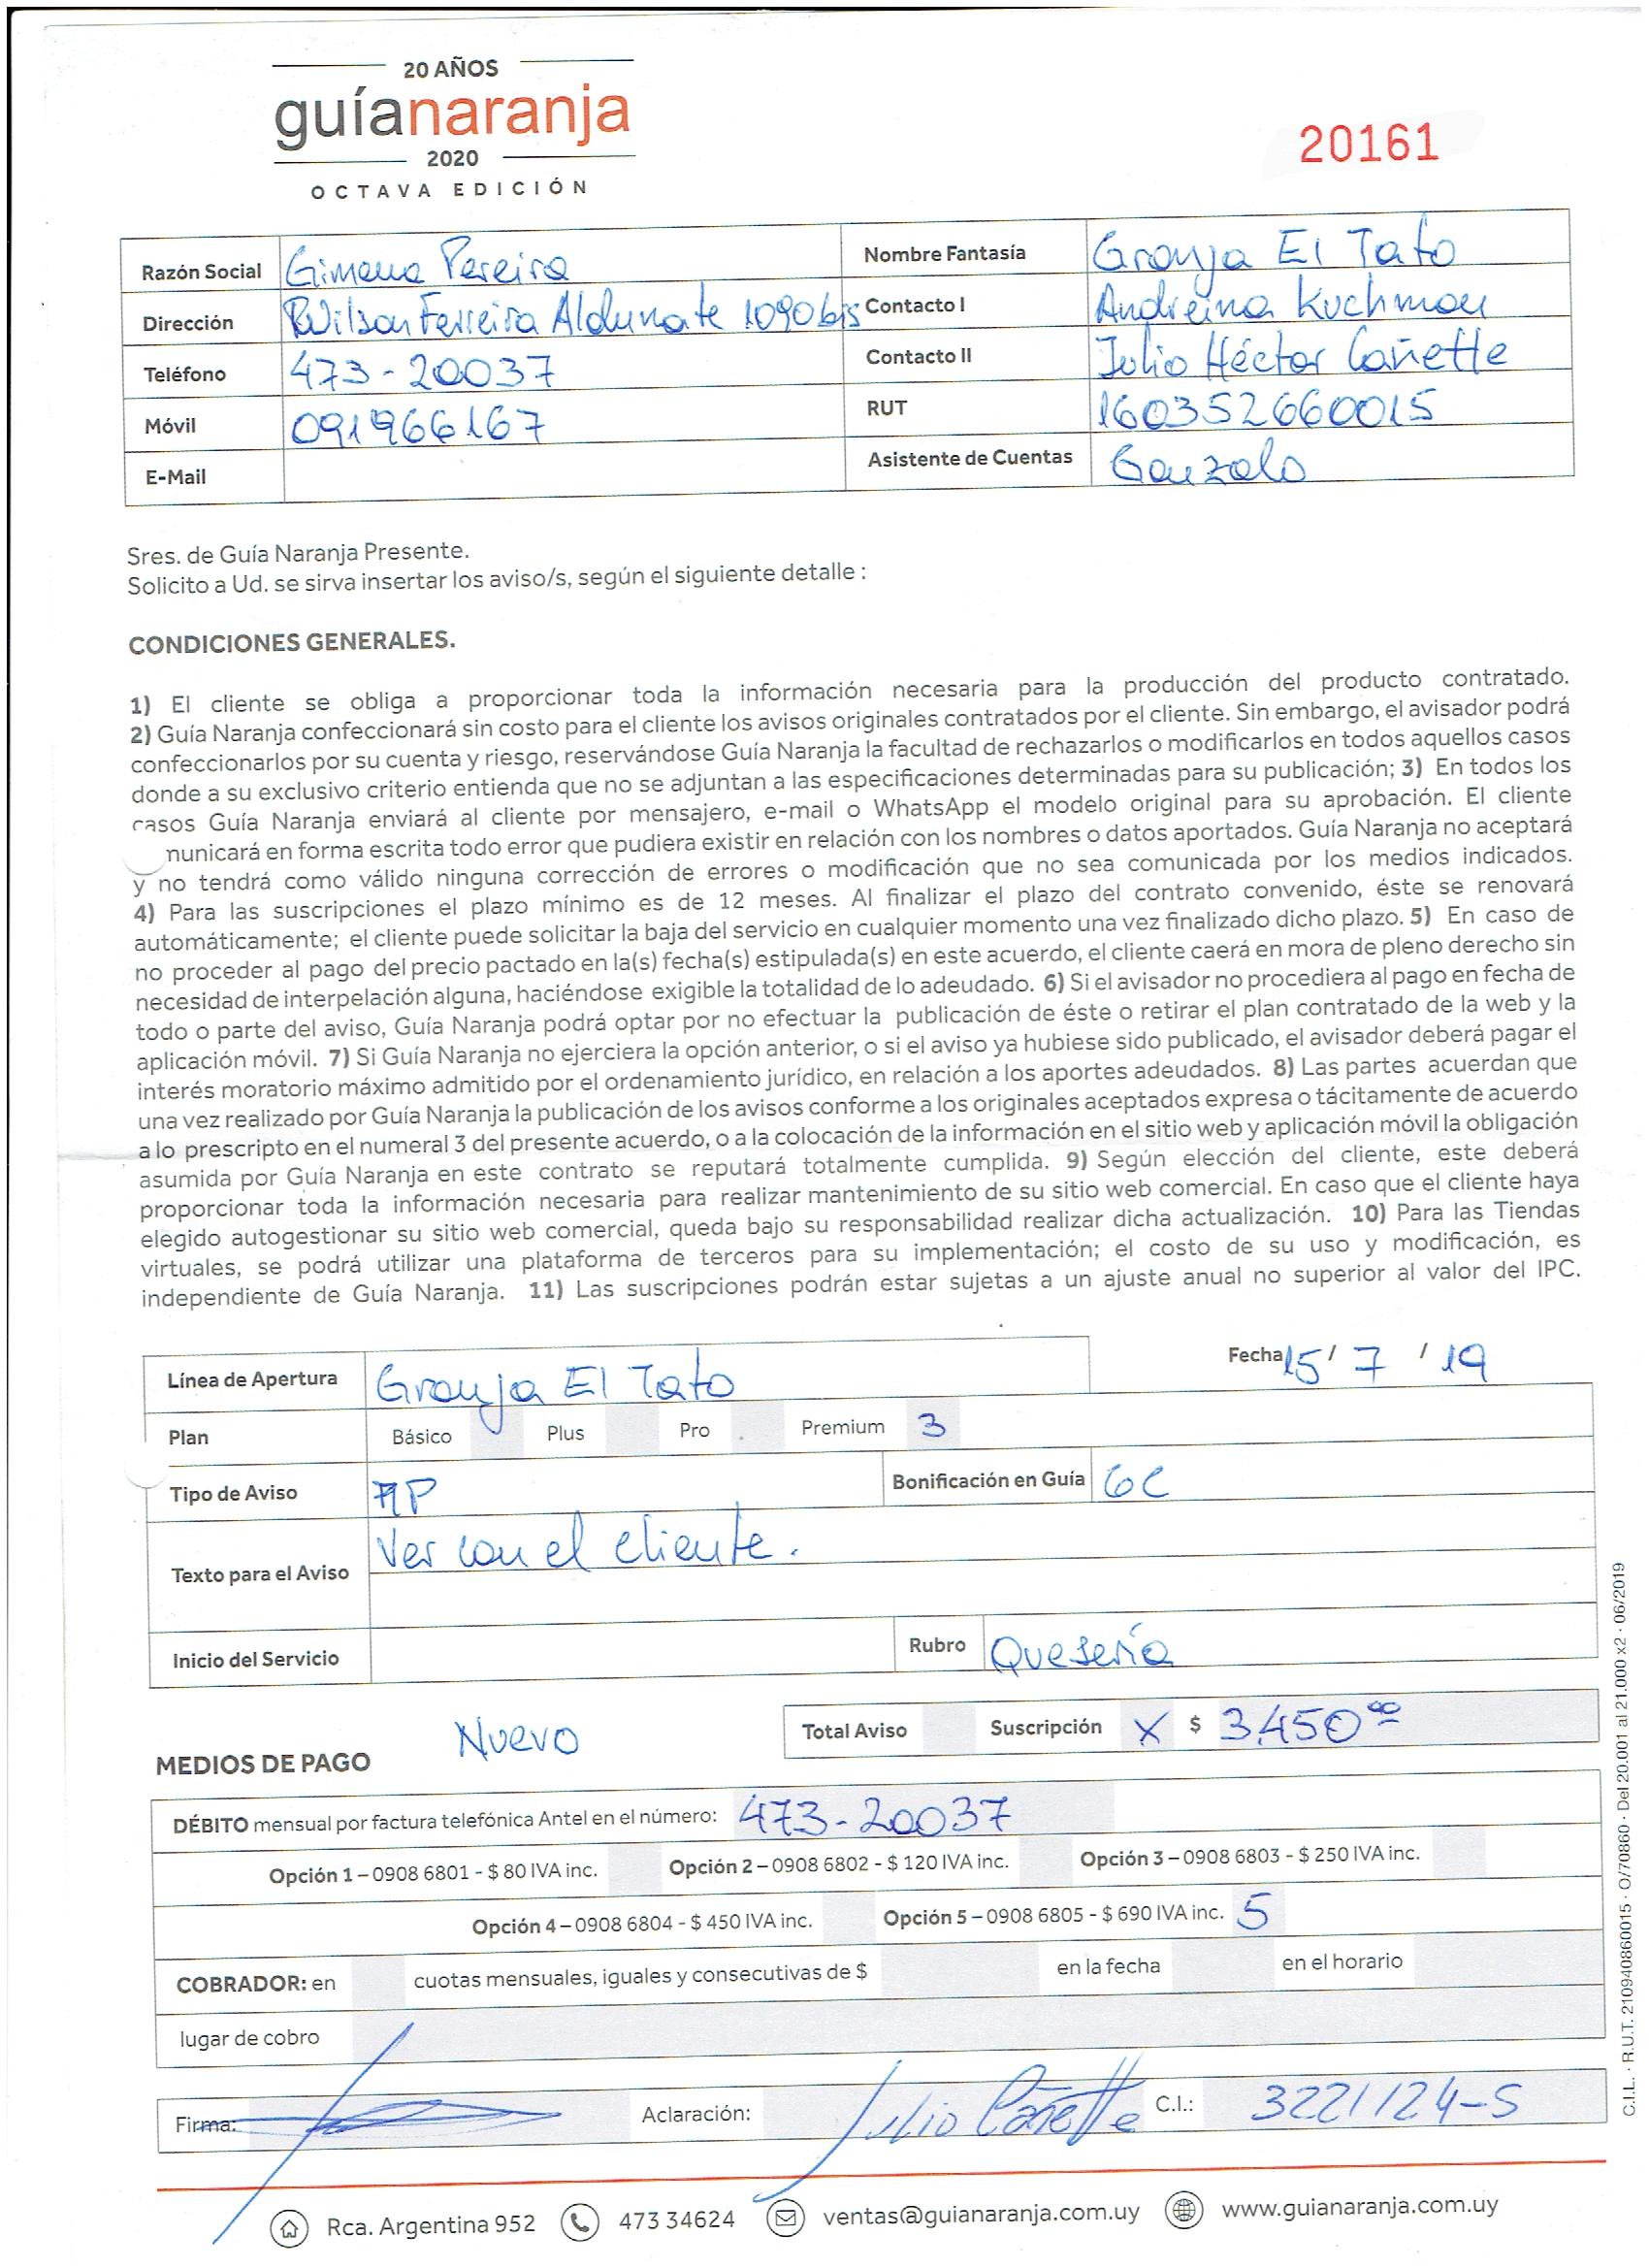 20 AÑOS
guíanaranja
2020
OCTAVA EDICIÓN
20161
Razón Social Gimena Pereira Nombre Fantasía Granja El Tato
Dirección Wilson Ferreira Aldunate 1090 bis Contacto I Andreina Kuchman
Teléfono 473-20037 Contacto II Julio Héctor Cañette
Móvil 091966167 RUT 160352660015
E-Mail Asistente de Cuentas Gonzalo
Sres. de Guía Naranja Presente.
Solicito a Ud. se sirva insertar los aviso/s, según el siguiente detalle :
CONDICIONES GENERALES.
1) El cliente se obliga a proporcionar toda la información necesaria para la producción del producto contratado.
2) Guía Naranja confeccionará sin costo para el cliente los avisos originales contratados por el cliente. Sin embargo, el avisador podrá
confeccionarlos por su cuenta y riesgo, reservándose Guía Naranja la facultad de rechazarlos o modificarlos en todos aquellos casos
donde a su exclusivo criterio entienda que no se adjuntan a las especificaciones determinadas para su publicación; 3) En todos los
casos Guía Naranja enviará al cliente por mensajero, e-mail o WhatsApp el modelo original para su aprobación. El cliente
municará en forma escrita todo error que pudiera existir en relación con los nombres o datos aportados. Guía Naranja no aceptará
y no tendrá como válido ninguna corrección de errores o modificación que no sea comunicada por los medios indicados.
4) Para las suscripciones el plazo mínimo es de 12 meses. Al finalizar el plazo del contrato convenido, éste se renovará
automáticamente; el cliente puede solicitar la baja del servicio en cualquier momento una vez finalizado dicho plazo. 5) En caso de
no proceder al pago del precio pactado en la(s) fecha(s) estipulada(s) en este acuerdo, el cliente caerá en mora de pleno derecho sin
necesidad de interpelación alguna, haciéndose exigible la totalidad de lo adeudado. 6) Si el avisador no procediera al pago en fecha de
todo o parte del aviso, Guía Naranja podrá optar por no efectuar la publicación de éste o retirar el plan contratado de la web y la
aplicación móvil. 7) Si Guía Naranja no ejerciera la opción anterior, o si el aviso ya hubiese sido publicado, el avisador deberá pagar el
interés moratorio máximo admitido por el ordenamiento jurídico, en relación a los aportes adeudados. 8) Las partes acuerdan que
una vez realizado por Guía Naranja la publicación de los avisos conforme a los originales aceptados expresa o tácitamente de acuerdo
a lo prescripto en el numeral 3 del presente acuerdo, o a la colocación de la información en el sitio web y aplicación móvil la obligación
asumida por Guía Naranja en este contrato se reputará totalmente cumplida. 9) Según elección del cliente, este deberá
proporcionar toda la información necesaria para realizar mantenimiento de su sitio web comercial. En caso que el cliente haya
elegido autogestionar su sitio web comercial, queda bajo su responsabilidad realizar dicha actualización. 10) Para las Tiendas
virtuales, se podrá utilizar una plataforma de terceros para su implementación; el costo de su uso y modificación, es
independiente de Guía Naranja. 11) Las suscripciones podrán estar sujetas a un ajuste anual no superior al valor del IPC.
Línea de Apertura Granja El Tato Fecha 15 / 7 / 19
Plan Básico Plus Pro Premium 3
Tipo de Aviso AP Bonificación en Guía GC
Texto para el Aviso Ver con el cliente.
Inicio del Servicio Rubro Quesería
Nuevo Total Aviso Suscripción X $ 3.450 00
MEDIOS DE PAGO
DÉBITO mensual por factura telefónica Antel en el número: 473-20037
Opción 1 – 0908 6801 - $ 80 IVA inc. Opción 2 – 0908 6802 - $ 120 IVA inc. Opción 3 – 0908 6803 - $ 250 IVA inc.
Opción 4 – 0908 6804 - $ 450 IVA inc. Opción 5 – 0908 6805 - $ 690 IVA inc. 5
COBRADOR: en cuotas mensuales, iguales y consecutivas de $ en la fecha en el horario
lugar de cobro
Firma: Aclaración: Julio Cañette C.I.: 3221124-5
Rca. Argentina 952 473 34624 ventas@guianaranja.com.uy www.guianaranja.com.uy
C.I.L. · R.U.T. 210940860015 · O/70860 · Del 20.001 al 21.000 x2 · 06/2019